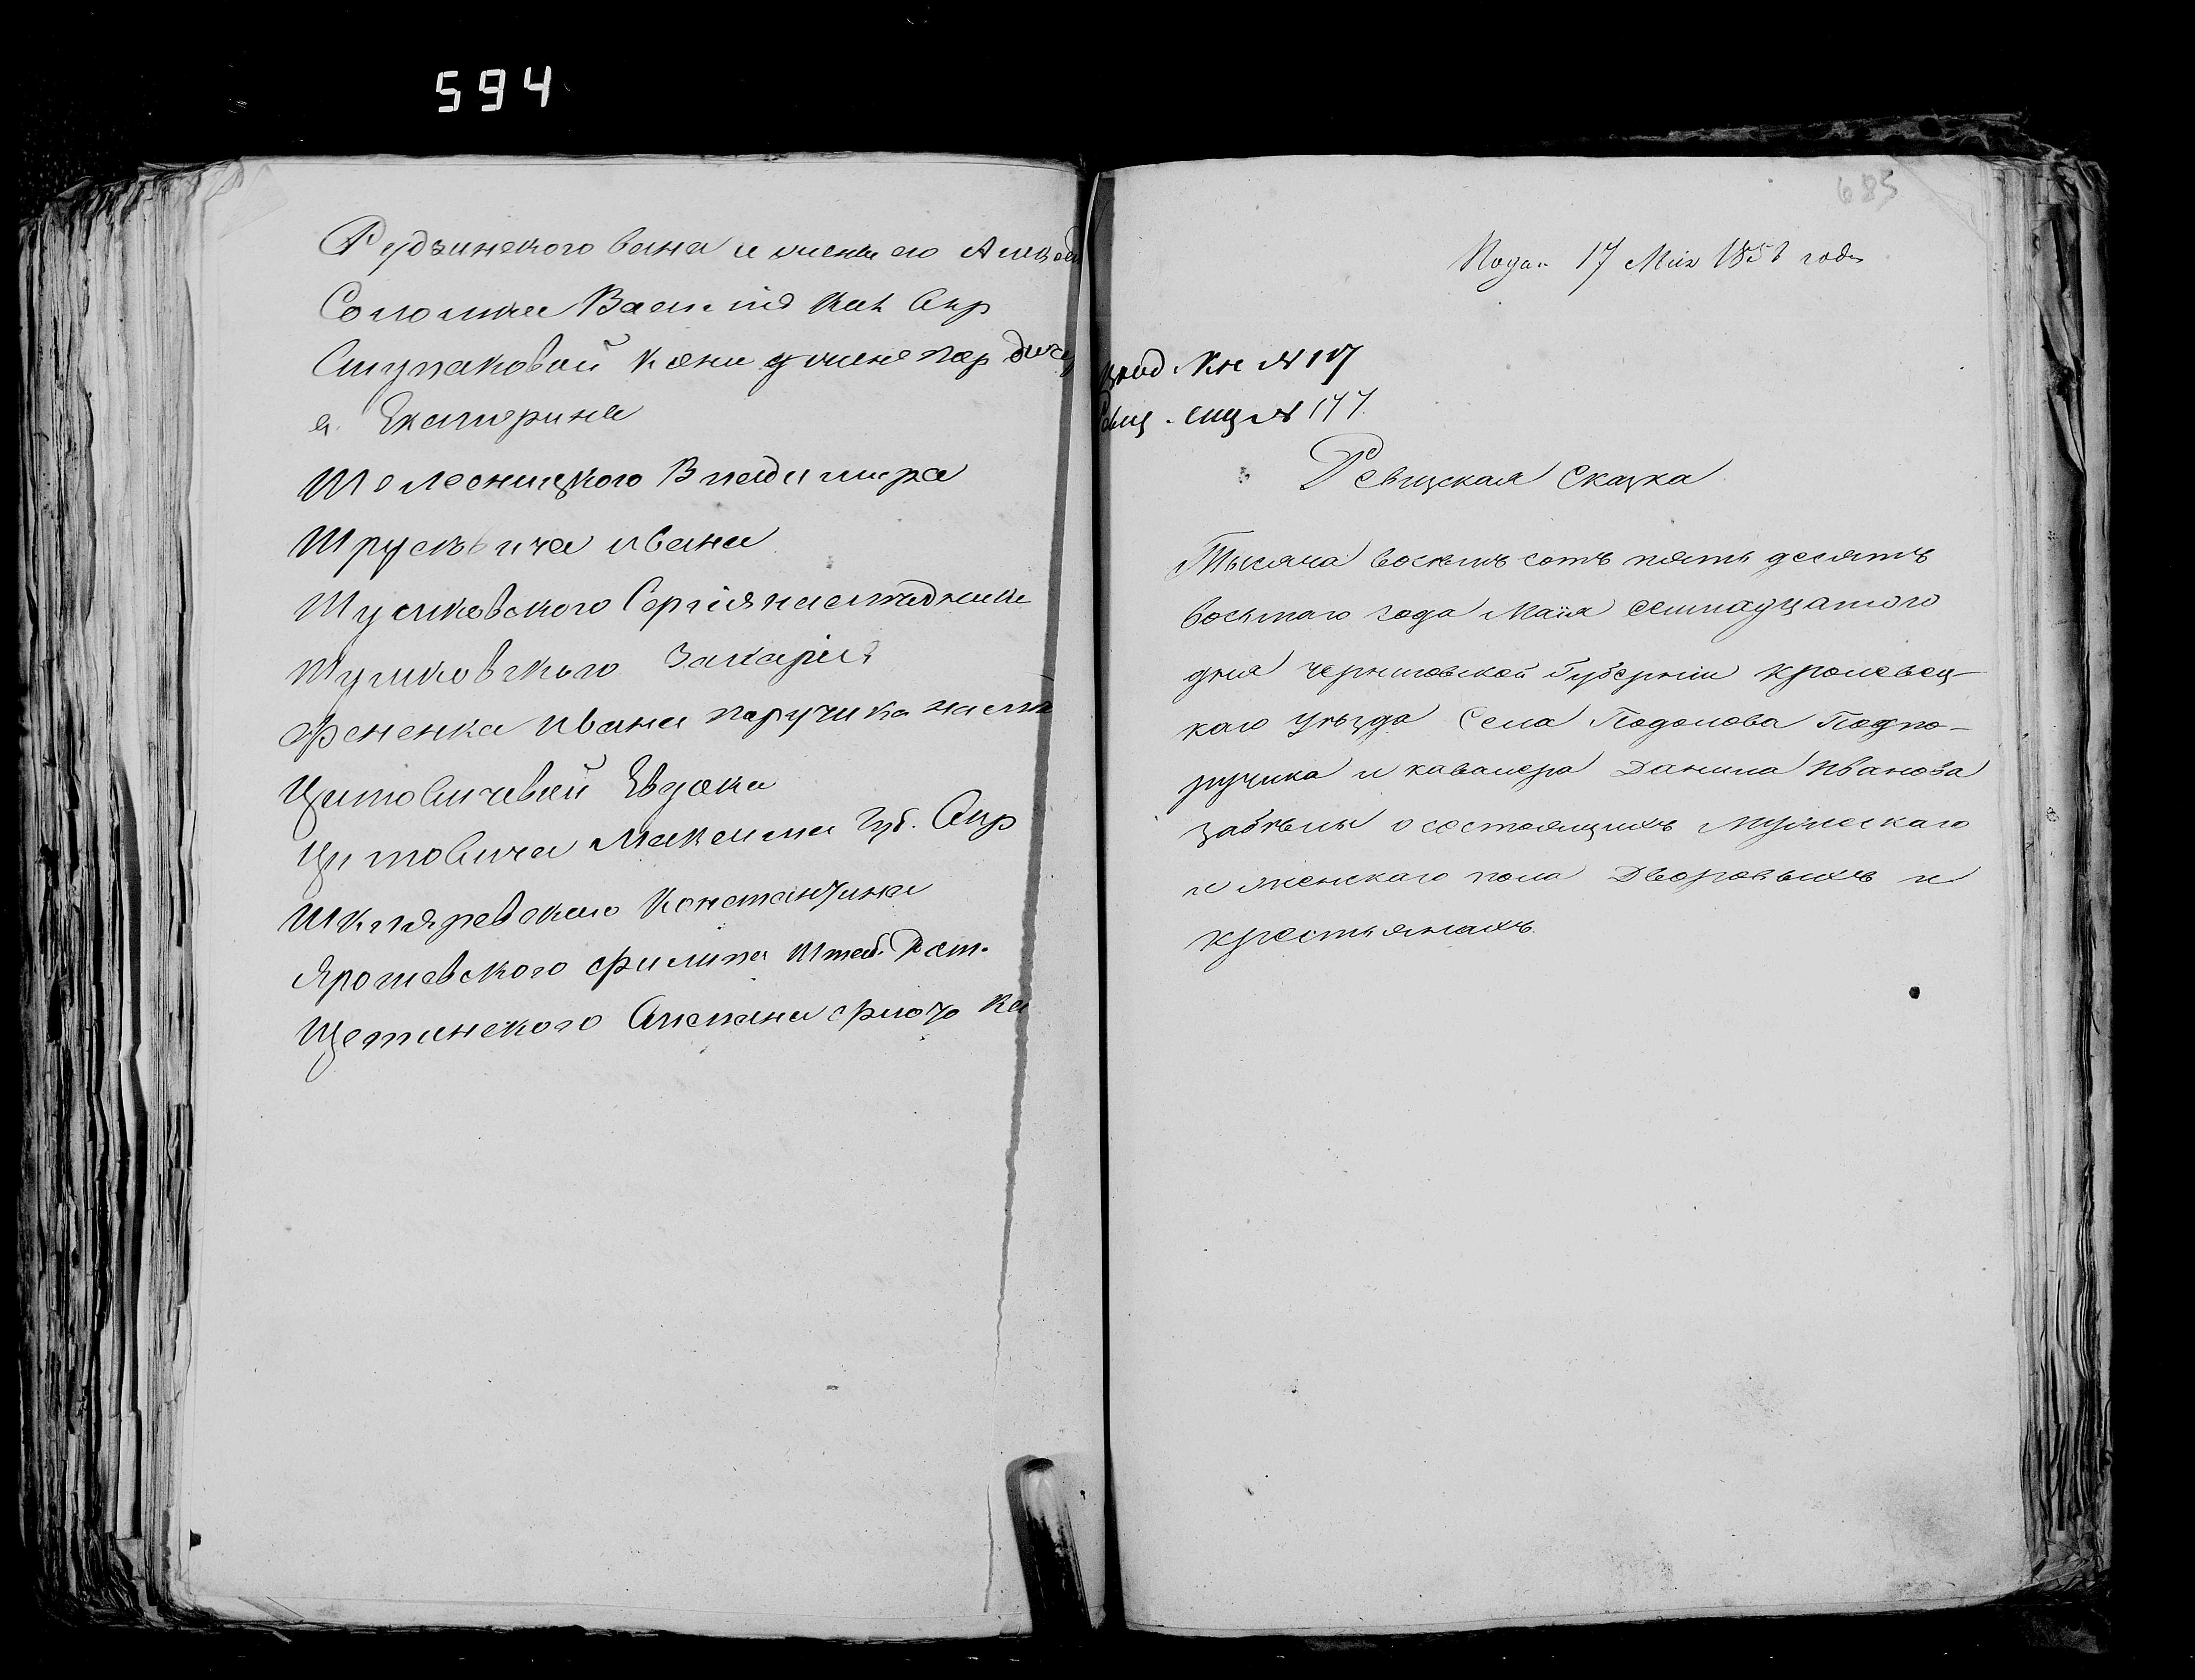 594
Рудзинского Ивана и жены его
Соломки Василия Кол Секр
Ступаковой Ксени у мене пор
и Екатерине
Телесницкого Владимира
Трусевича Ивана
Тушковского Сергия наследники
Тушковского Захария
Фененка Ивана поручика насл
Цитовичевой Евдоки
Цитовича Максима Губ. Секр
Шкляревского Константина
Ярошевского Филипа Штаб. Рот.
Щетинского Степана Флота Ка
685
Подан 17 Мая 1858 года
вход. Кн № 117
№ 177.
Ревизская Сказка
Тысяча восемь сотъ пять десятъ
восьмаго года Маія семнадцатого
дня Черниговской Губерніи Кролевец-
каго уезда Села Подолова Подпо-
ручика и кавалера Данила Иванова
Забѣлы о состоящихъ мужескаго
и женскаго пола Дворовыхъ и
крестьянахъ.